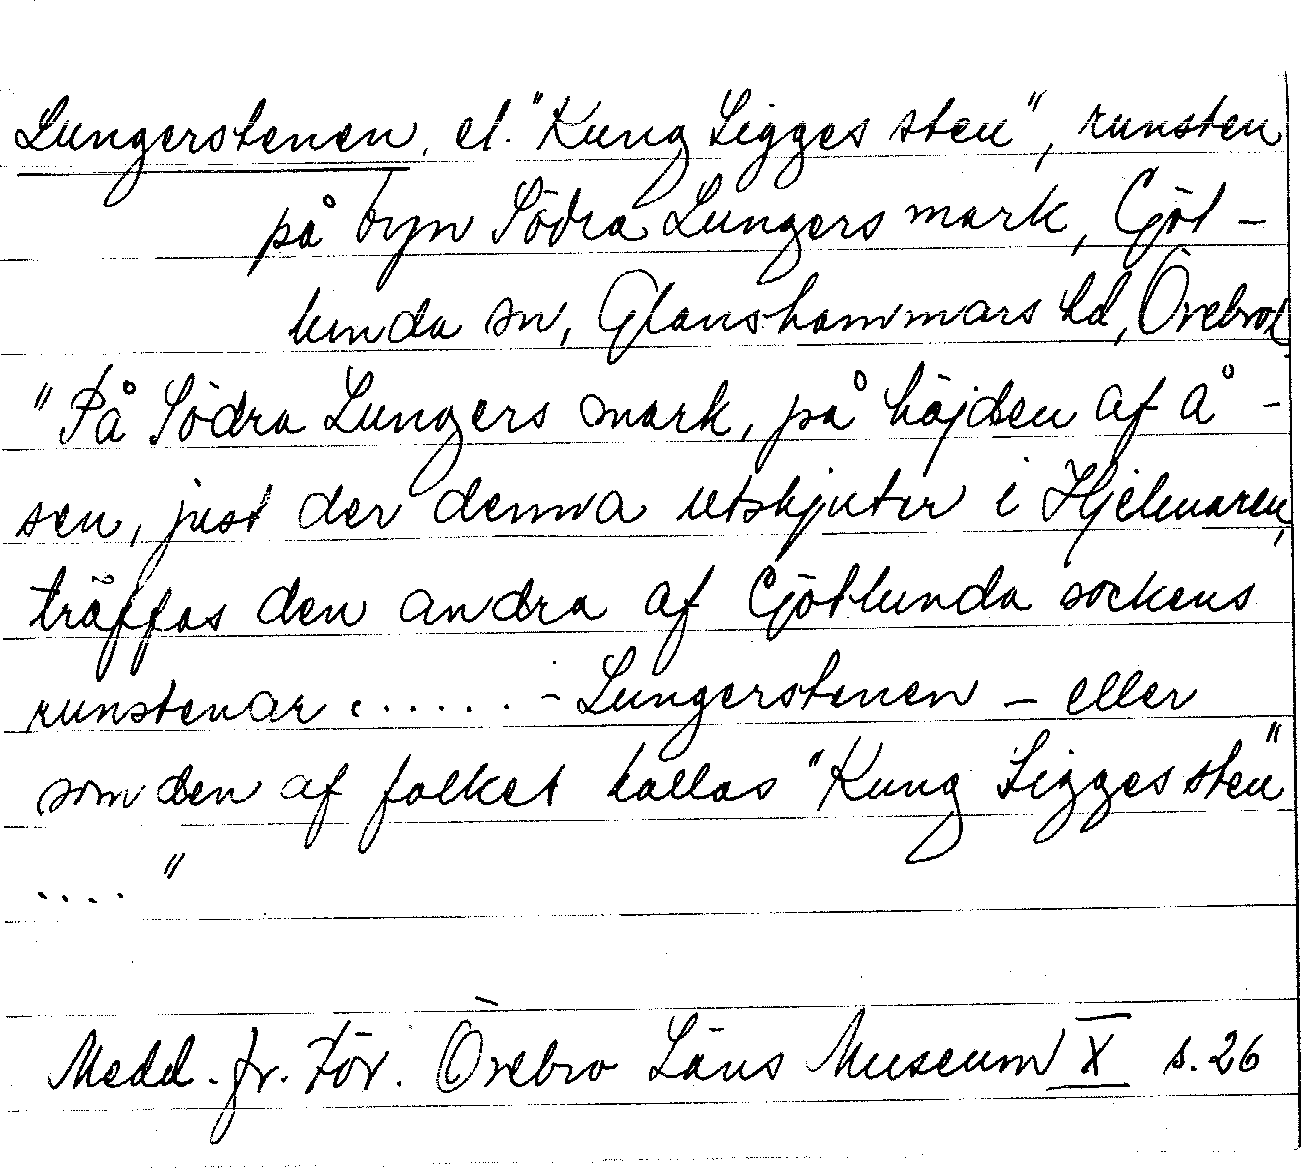 Lungerstenen, el. "Kung Sigges sten", runsten
på byn Södra Lungers mark, Göt-
lunda sn, Glanshammars hd, Örebro l
"På Södra Lungers mark, på höjden af å-
sen, just der denna utskjuter i Hjelmaren,
träffas den andra af Götlunda sockens
runstenar ...... - Lungerstenen - eller
som den af folket kallas "Kung Sigges sten"
...."
Medd. fr. För. Örebro Läns Museum X s. 26